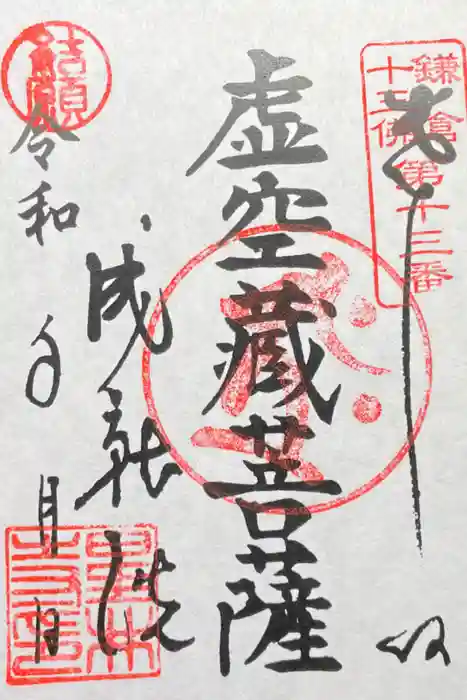 鎌倉第十三番
十三佛
奉拝
虚空蔵菩薩
成就院
令和 年 月 日
結願